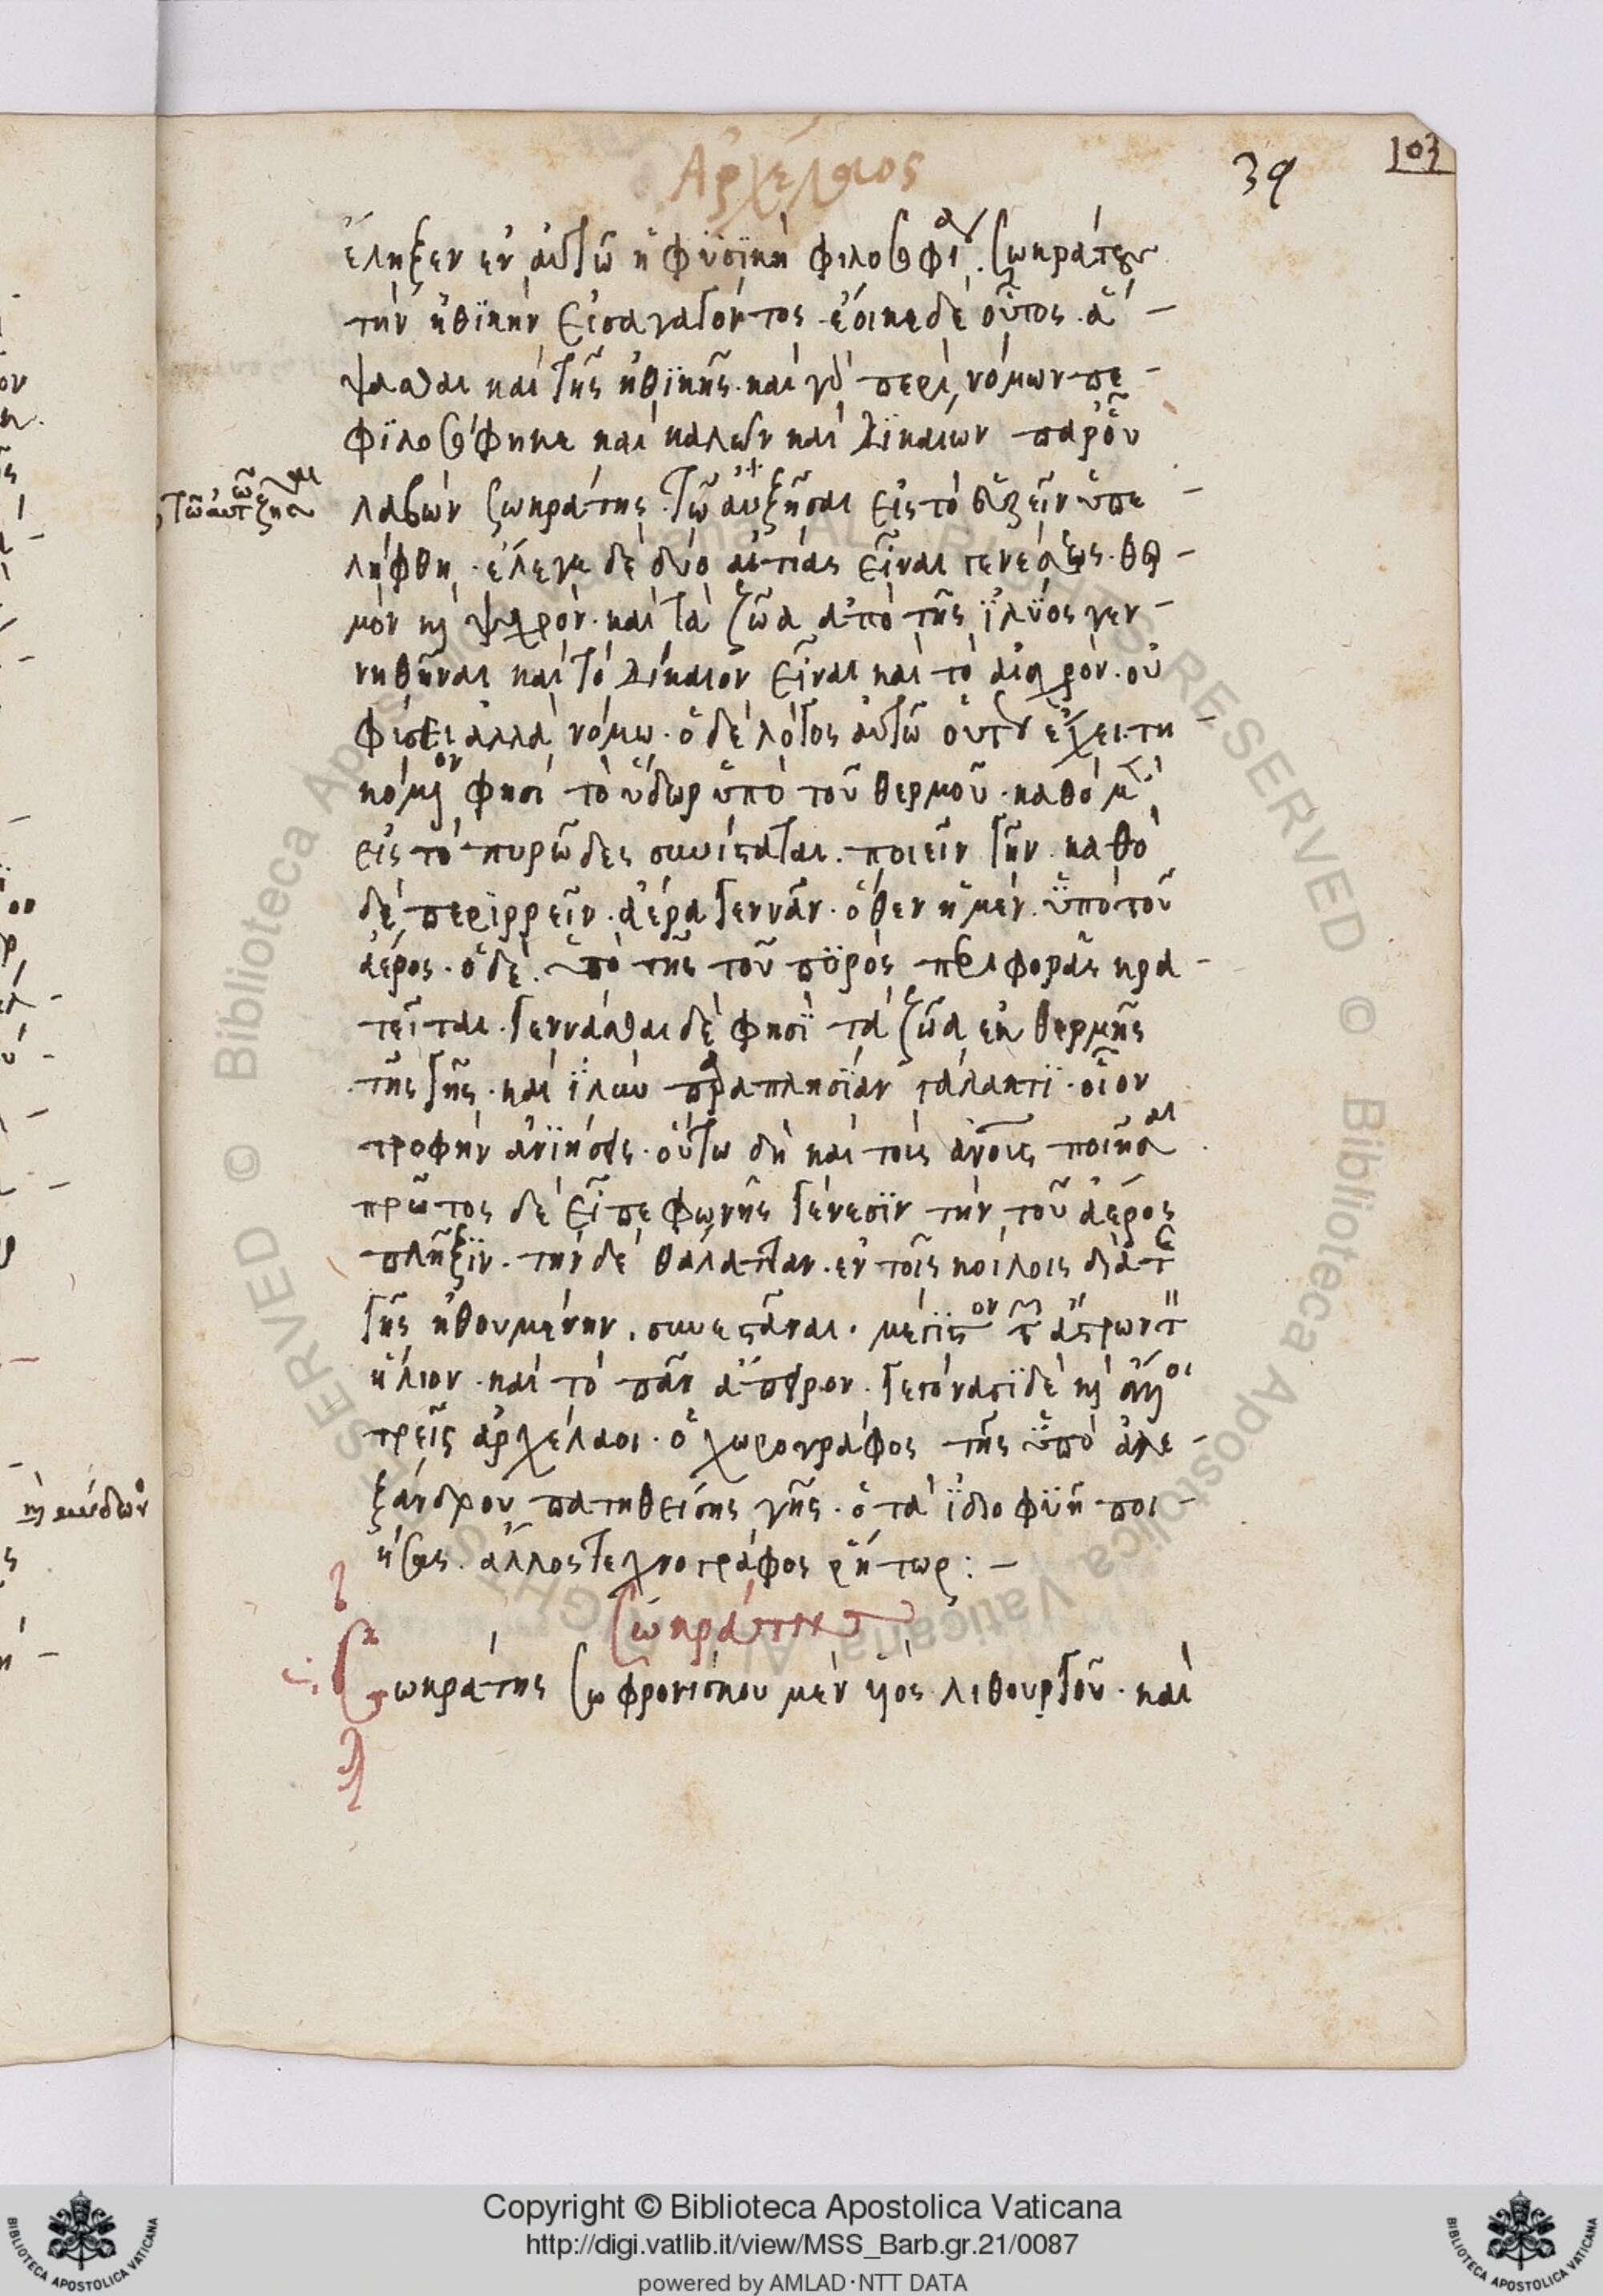 Ἀρχέλαος
39
103
ἔληξεν ἐν αὐτῶ ἡ φϋσϊκὴ φιλοσοφία. σωκράτους
τὴν ἠθϊκὴν εἰσαγαγόντος. ἔοικε δὲ οὗτος ἅ-
ψασθαι καὶ τῆς ἠθϊκῆς. καὶ γὰρ περὶ νόμων πε-
φϊλοσόφηκε καὶ καλῶν καὶ δϊκαίων παρ' οὗ
λαβὼν σωκράτης. τῶ αὐξῆσαι εἰς τὸ εὑρεῖν ὑπε-
λήφθη. ἔλεγε δὲ δύο αἰτίας εἶναι γενέσεως. θερ-
μὸν καὶ ψυχρόν. καὶ τὰ ζῶα ἀπὸ τῆς ἰλϋος γεν-
νηθῆναι καὶ τὸ δίκαιον εἶναι καὶ τὸ αἰσχρὸν. οὐ
φύσει ἀλλὰ νόμω. ὁ δὲ λόγος αὐτῶ οὕτως ἔχει. τη-
κόμενον φησὶ τὸ ὕδωρ ὑπὸ τοῦ θερμοῦ. καθὸ μὲν
εἰς τὸ πυρῶδες συνίσταται. ποιεῖν γῆν. καθὸ
δὲ περϊρρεῖν. ἀέρα γεννᾶν. ὅθεν ἡ μὲν. ὑπὸ τοῦ
ἀέρος. ὁ δὲ. ὑπὸ τῆς τοῦ πϋρὸς περιφορᾶς κρα-
τεῖται. γεννᾶσθαι δὲ φησϊ τὰ ζῶα ἐκ θερμῆς
τῆς γῆς. καὶ ϊλὺν παραπλησϊαν γάλακτϊ. οἷον
τροφὴν ἀνϊείσης. οὕτω δὴ καὶ τοὺς ἀνους ποιῆσαι
πρῶτος δὲ εἶπε φωνῆς γένεσϊν τὴν τοῦ ἀέρος
πλῆξϊν. τὴν δὲ θάλατταν. ἐν τοῖς κοίλοις διὰ τῆς
γῆς ἠθουμένην. συνεστάναι. μέγιστον τῶν ἄστρων τὸν
ἥλιον. καὶ τὸ πᾶν ἄπειρον. γεγόνασϊ δὲ καὶ ἄλλοι
τρεῖς ἀρχέλαοι. ὁ χωρογράφος τῆς ὑπὸ ἀλε-
ξάνδρου πατηθείσης γῆς. ὁ τὰ ϊδιοφϋῆ ποι-
ήσας. ἄλλος τεχνογράφος ῥήτωρ: -
σωκράτης
Σωκράτης σωφρονίσκου μὲν υἱὸς λιθουργοῦ. καὶ
Copyright © Biblioteca Apostolica Vaticana
http://digi.vatlib.it/view/MSS_Barb.gr.21/0087
powered by AMLAD·NTT DATA